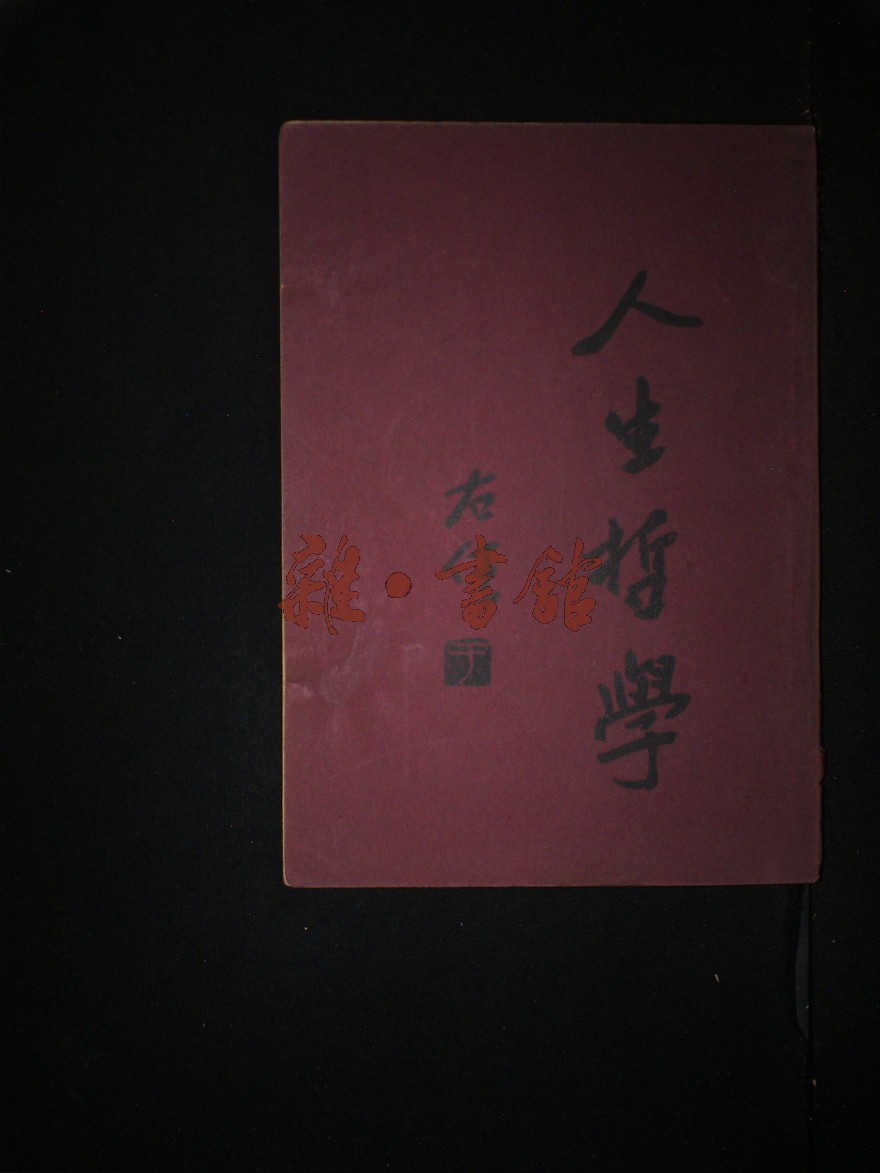 人生哲學
右任
雜·書館